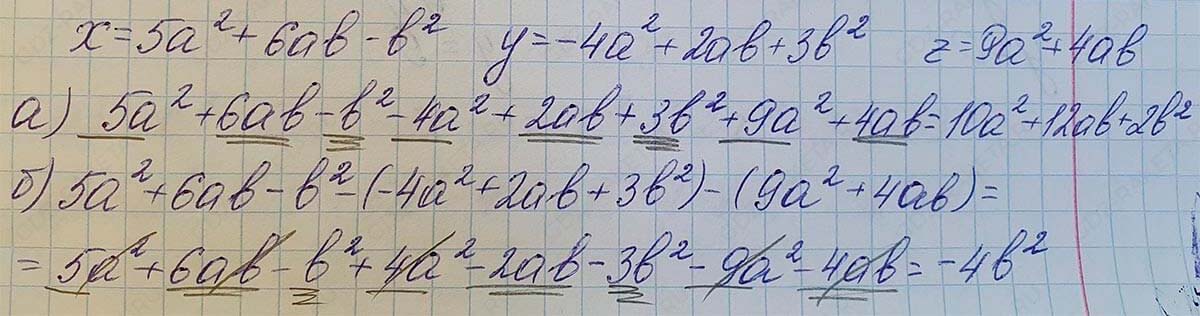 x=5a²+6ab-b² y=-4a²+2ab+3b² z=9a²+4ab
а) 5a²+6ab-b²-4a²+2ab+3b²+9a²+4ab=10a²+12ab+2b²
б) 5a²+6ab-b²-(-4a²+2ab+3b²)-(9a²+4ab)=
=5a²+6ab-b²+4a²-2ab-3b²-9a²-4ab=-4b²